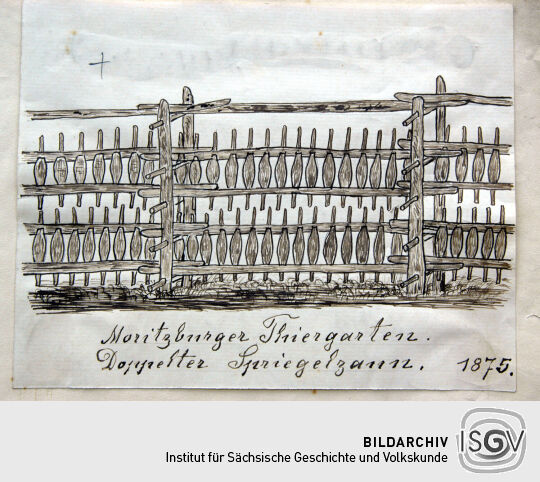 Moritzburger Thiergarten.
Doppelter Spriegelzaun. 1875.
BILDARCHIV
Institut für Sächsische Geschichte und Volkskunde
ISGV